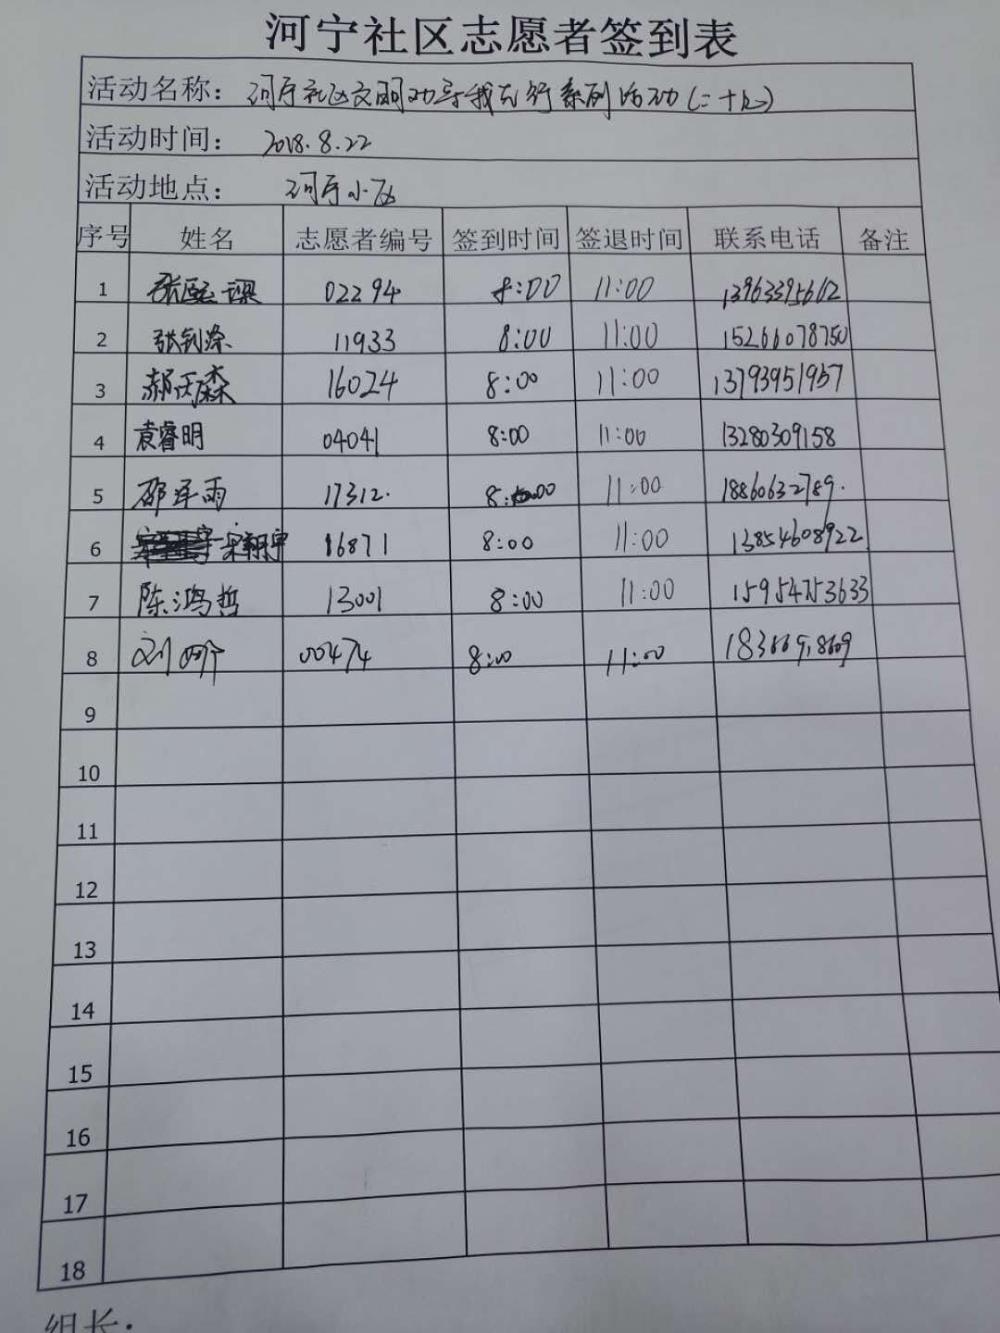 河宁社区志愿者签到表
活动名称：河宁社区文明劝导我先行系列活动(二十七)
活动时间：2018.8.22
活动地点：河宁小区
序号 姓名 志愿者编号 签到时间 签退时间 联系电话 备注
1 张 02294 8:00 11:00 13963395612
2 张钊添 11933 8:00 11:00 15266078750
3 郝丙森 16024 8:00 11:00 13793951957
4 袁睿明 04041 8:00 11:00 13280309158
5 邵泽雨 17312. 8:00 11:00 18860632789.
6 宋翔宇 16871 8:00 11:00 13854608922
7 陈鸿哲 13001 8:00 11:00 15954753633
8 刘 00474 8:00 11:00
9
10
11
12
13
14
15
16
17
18
组长：